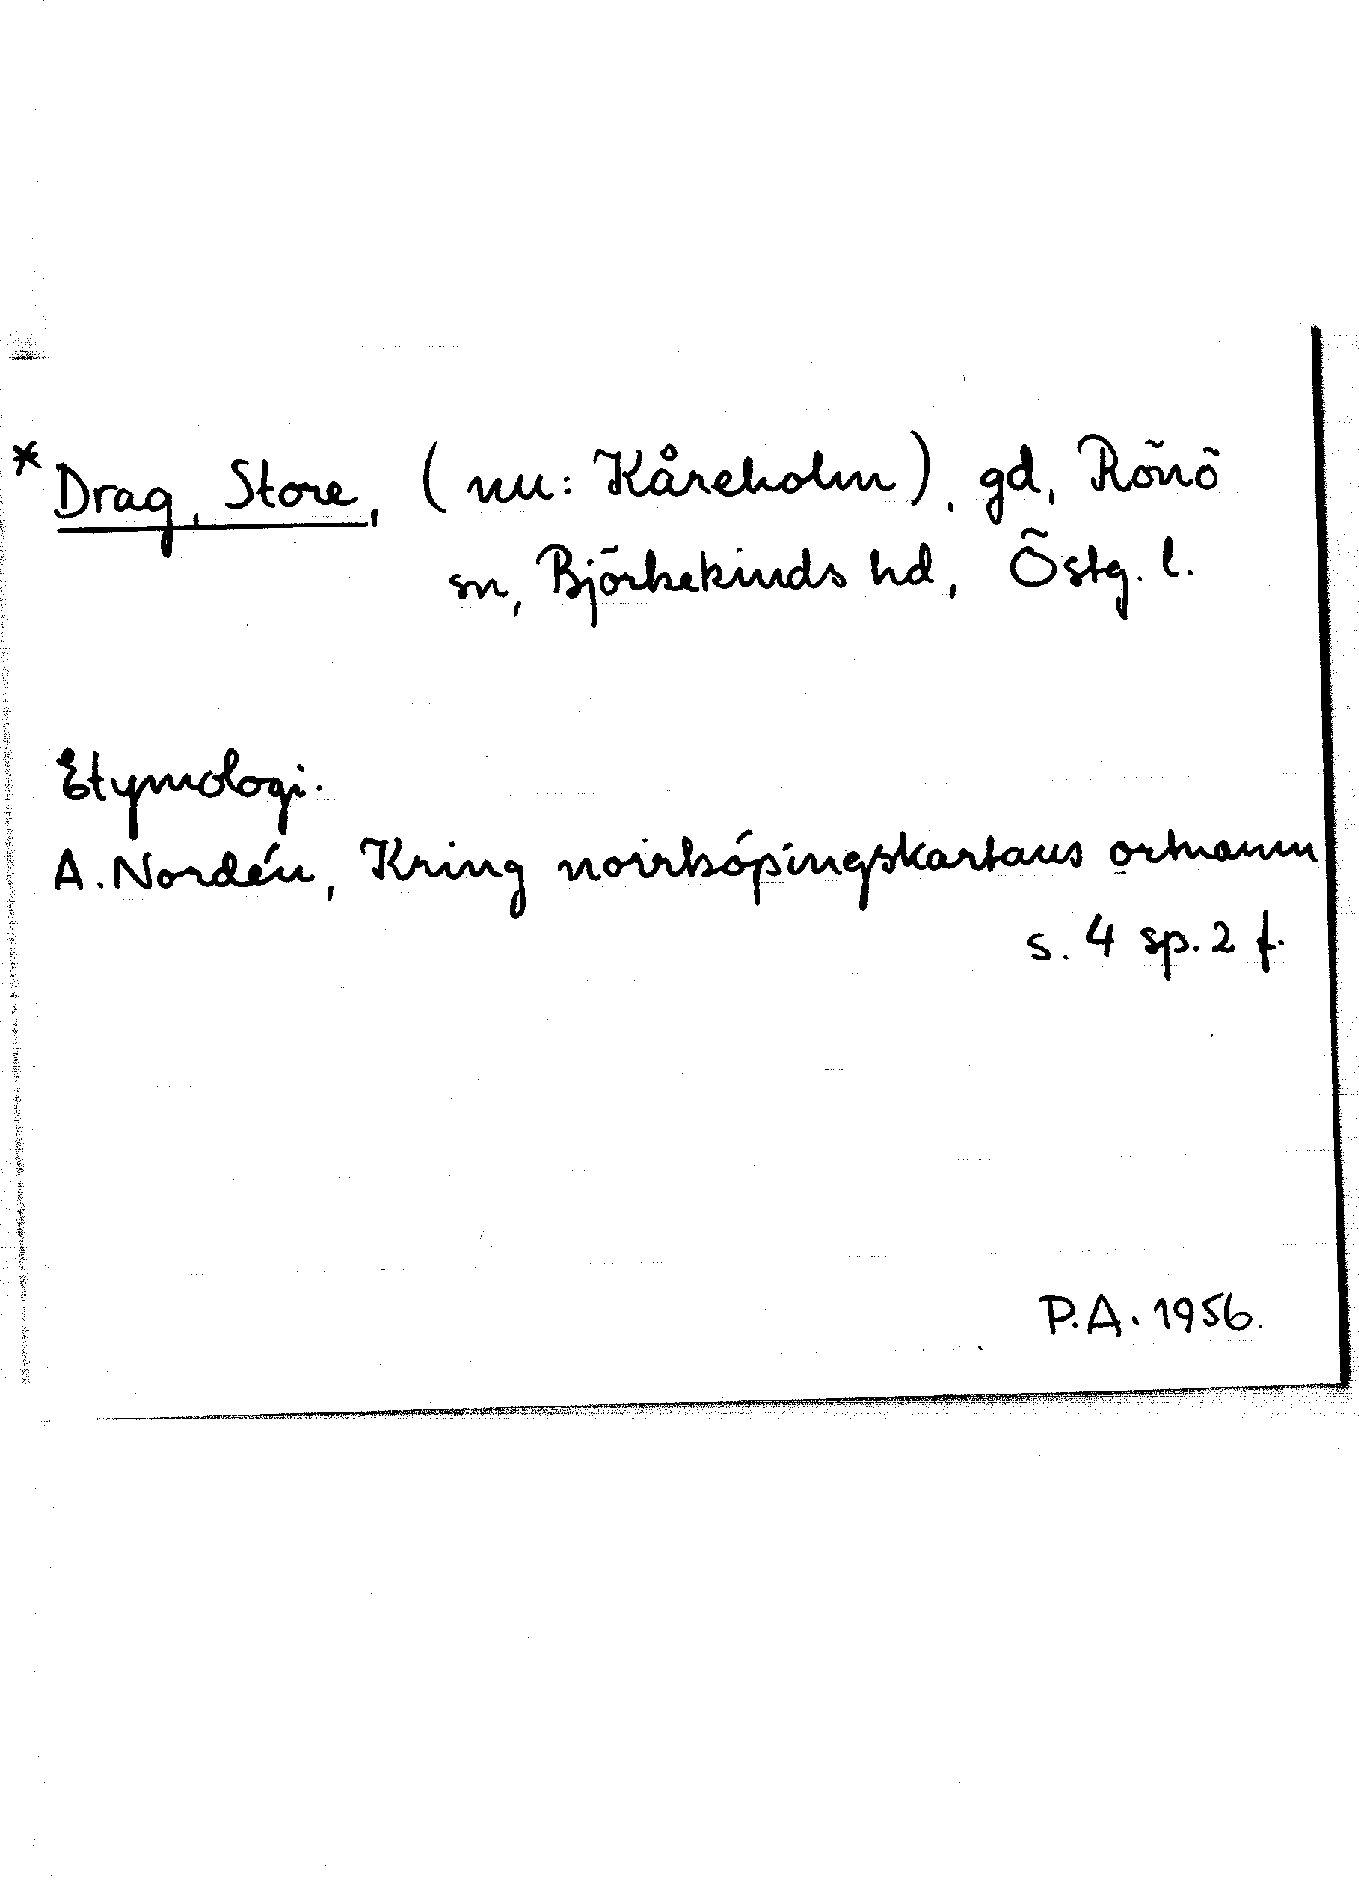 * Drag, Store, (nu: Kåreholm), gd, Rönö
sn, Björkekinds hd, Östg. l.
Etymologi.
A. Nordén, Kring norrköpingskartans ortnamn
s. 4 sp. 2 f.
P.A. 1956.